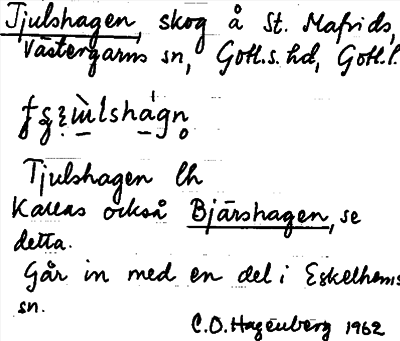 Tjulshagen, skog å St. Mafrids,
Västergarns sn, Gotl.s. hd, Gotl.l.
Tjulshagen lh
Kallas också Bjärshagen, se
detta.
Går in med en del i Eskelhems
sn.
C.O. Hagenberg 1962